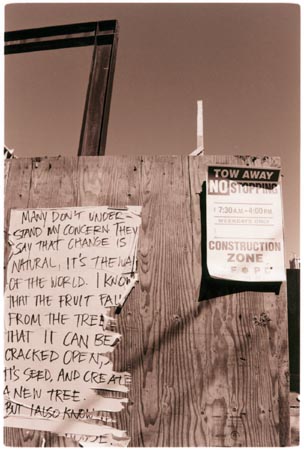 MANY DON'T UNDER-
STAND MY CONCERN THEY
SAY THAT CHANGE IS
NATURAL, IT'S THE WAY
OF THE WORLD. I KNOW
THAT THE FRUIT FAL
FROM THE TREE
THAT IT CAN BE
CRACKED OPEN,
IT'S SEED, AND CREATE
A NEW TREE.
BUT I ALSO KNOW
TOW AWAY
NO STOPPING
7:30 A.M - 4:00 PM
WEEKDAYS ONLY
CONSTRUCTION
ZONE